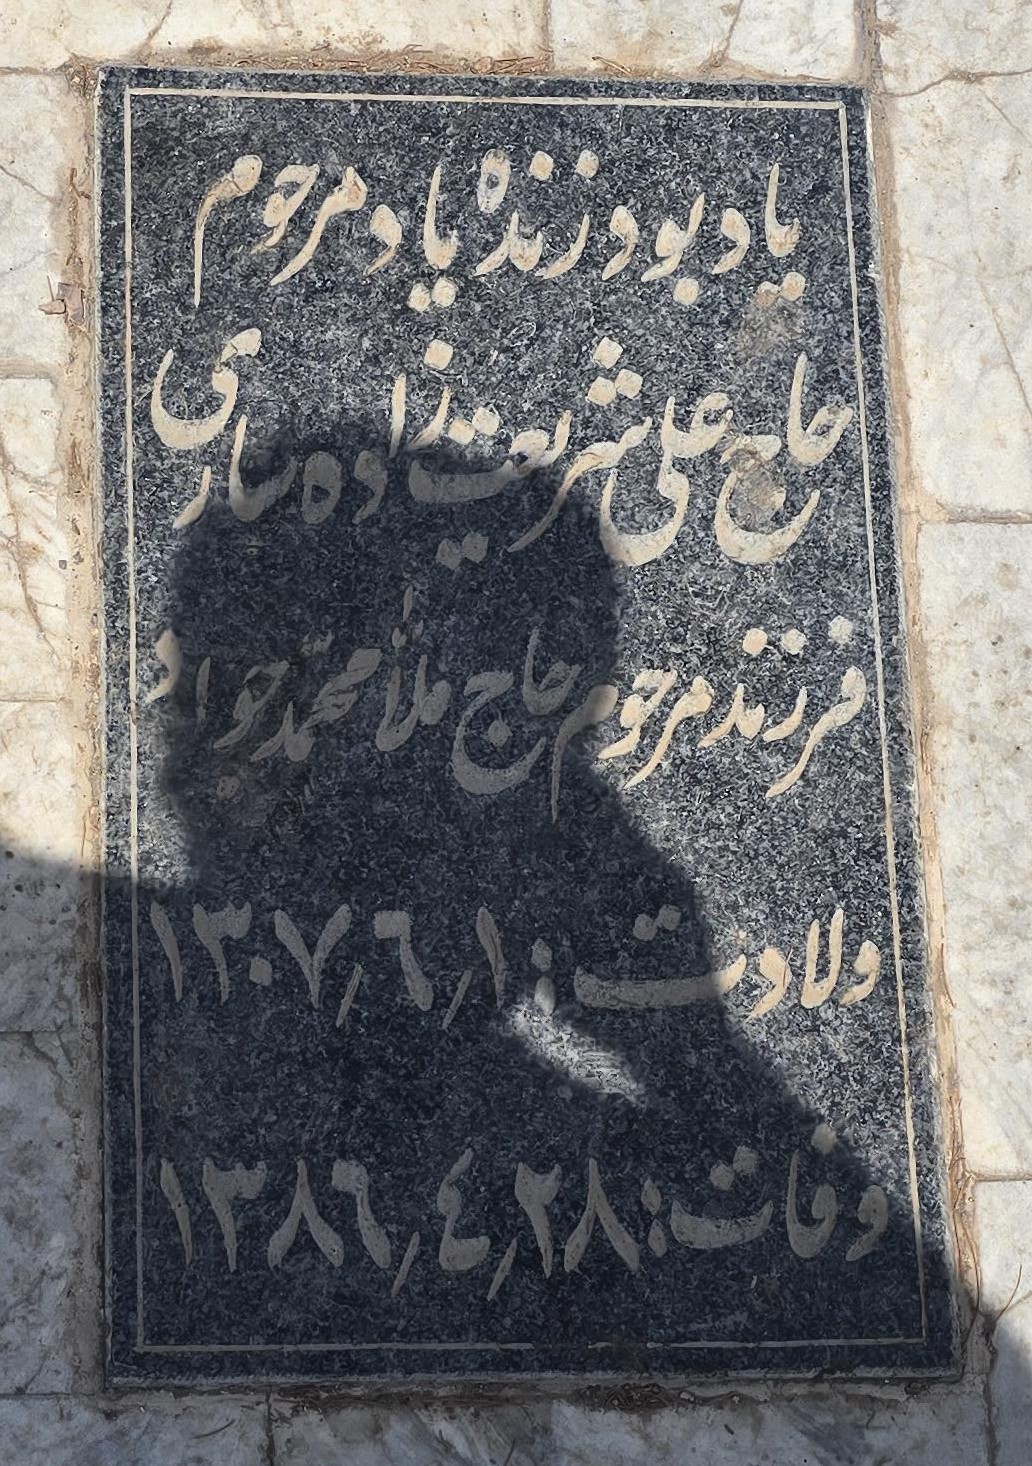 یادبود زنده یاد مرحوم
حاج علی شریعت زاده ساری
فرزند مرحوم حاج ملا محمد جواد
ولادت: ۱٫۶٫۱۳۰۷
وفات: ۲۸٫۴٫۱۳۸۶